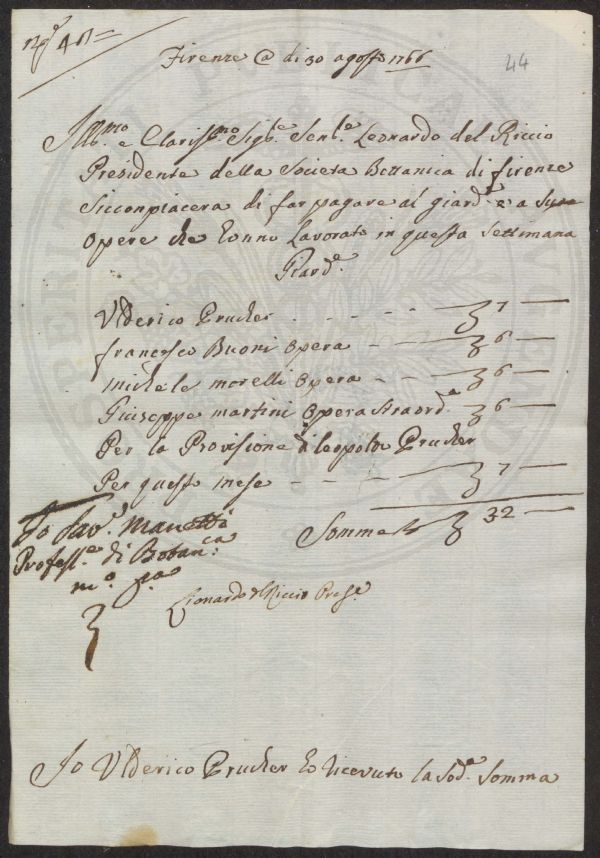 Nº 41=
44
Firenze @ di 30 agosto 1766
Illmo e Clarissmo Sigre Senre Leonardo del Riccio
Presidente della Societa Bottanica di firenze
Siconpiacera di far pagare al giardre e a Sue
Opere che Eonno Lavorato in questa Settimana
Giardre
Vlderico Prucher - - - - 7 —
francesco Buoni Opera - - 6 —
michele morelli Opera - - 6 —
Giuseppe martini Opera Straorda 6 —
Per la Provisione di leopoldo Prucher
Per questo mese - - - 7 —
Somma 32 —
Io Savr. Manetti
Professe di Botanca
mo pa
Lionardo del Riccio Prese
Io Vlderico Prucher ho riceuuto la Soda Somma